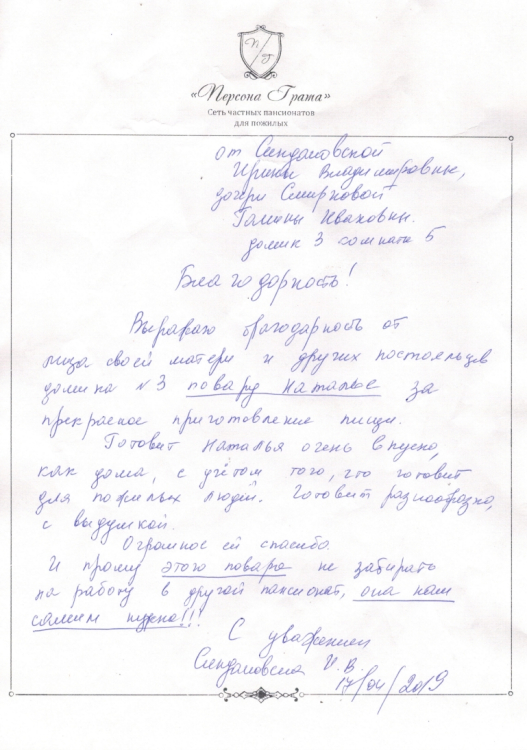 П/Г
«Персона Грата»
Сеть частных пансионатов
для пожилых
от Синдаловской
Ирины Владимировны,
дочери Смирновой
Галины Ивановны.
домик 3 комната 5
Благодарность!
Выражаю благодарность от
лица своей матери и других постояльцев
домика №3 повару Наталье за
прекрасное приготовление пищи.
Готовит Наталья очень вкусно,
как дома, с учётом того, что готовит
для пожилых людей. Готовит разнообразно,
с выдумкой.
Огромное ей спасибо.
И прошу этого повара не забирать
на работу в другой пансионат, она нам
самим нужна!!!
С уважением
Синдаловская И.В.
17/04/2019